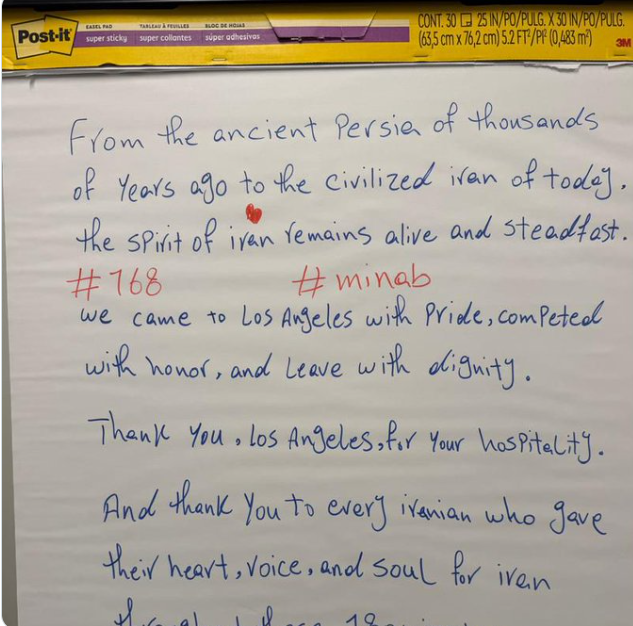 Post-it
EASEL PAD
super sticky
TABLEAU À FEUILLES
super collantes
BLOC DE HOJAS
súper adhesivas
CONT. 30 25 IN/PO/PULG. X 30 IN/PO/PULG.
(63,5 cm x 76,2 cm) 5.2 FT²/PI² (0,483 m²)
3M
From the ancient Persia of thousands
of Years ago to the civilized iran of today.
the spirit of iran remains alive and steadfast.
#168 #minab
we came to Los Angeles with Pride, competed
with honor, and Leave with dignity.
Thank You, Los Angeles, for Your hospitality.
And thank You to every iranian who gave
their heart, voice, and soul for iran